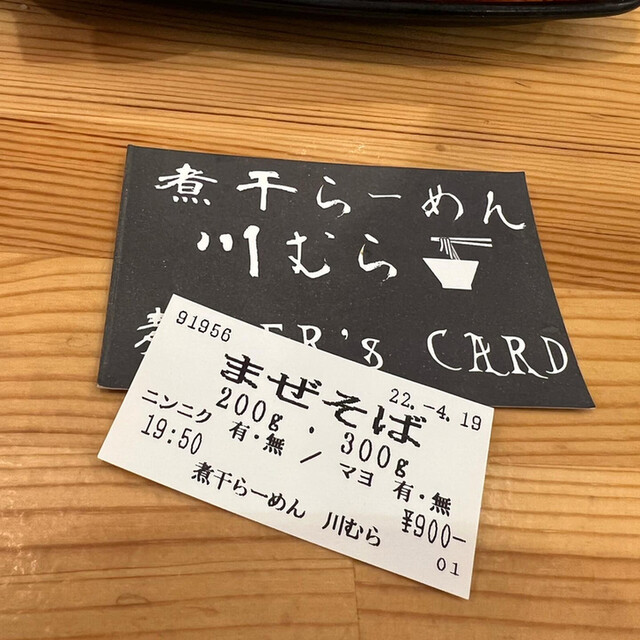 煮干らーめん
川むら
CARD
91956
22.-4.19
まぜそば
200g・300g
ニンニク 有・無 / マヨ 有・無
19:50
¥900-
煮干らーめん 川むら
01